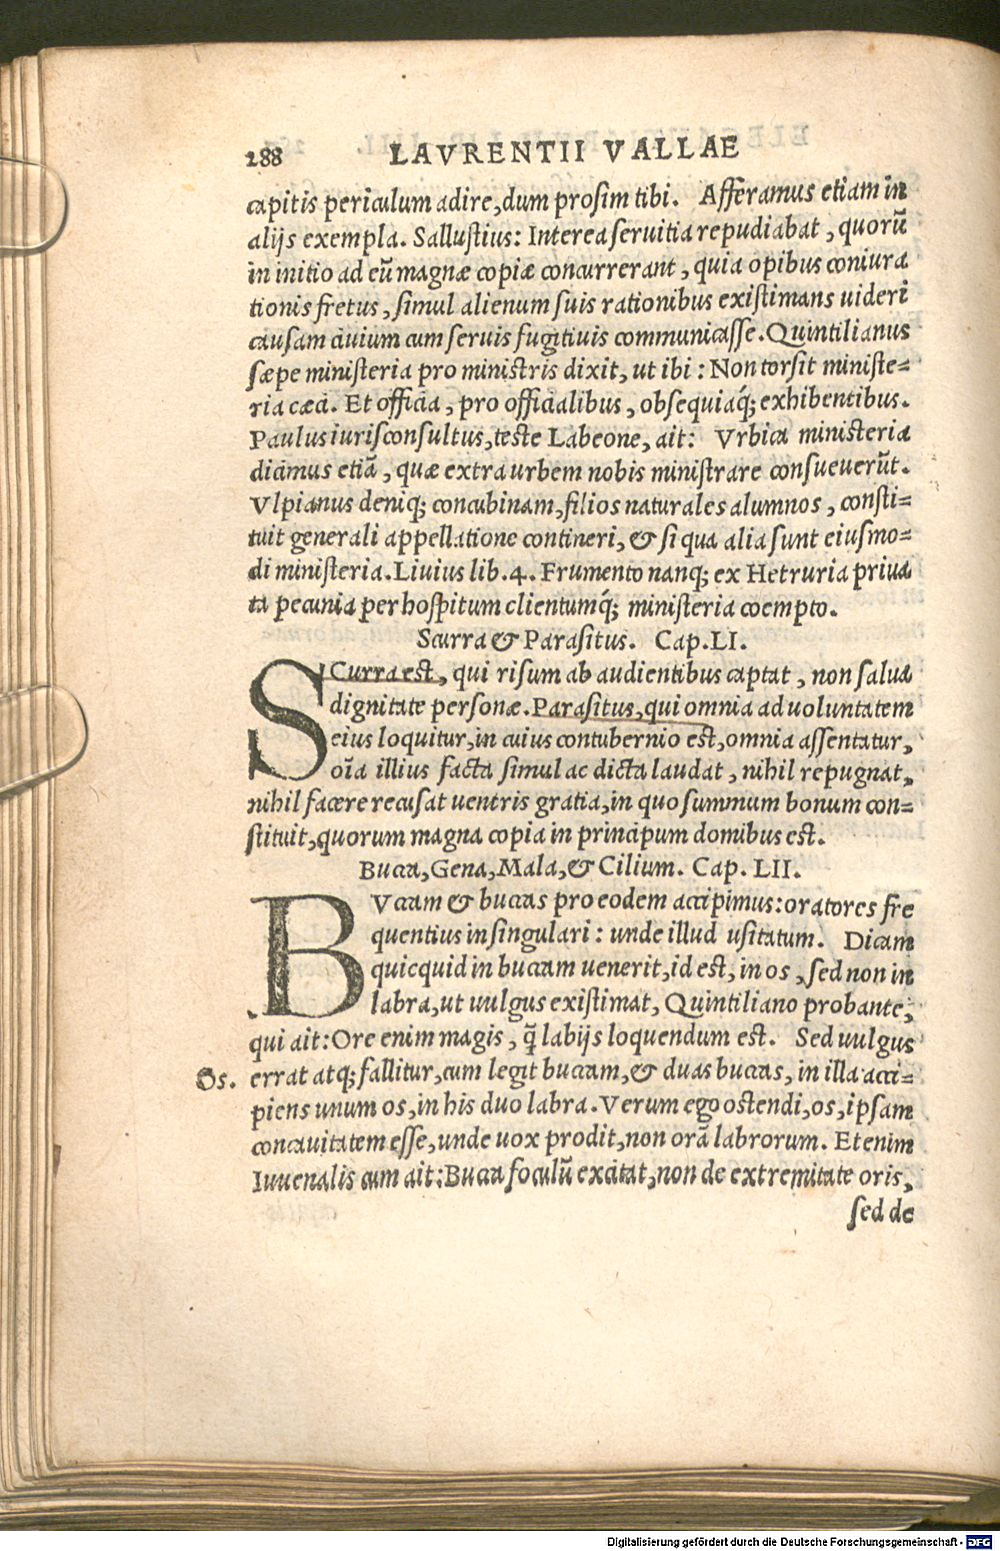 288 LAVRENTII VALLAE
capitis periculum adire, dum prosim tibi. Afferamus etiam in
alijs exempla. Sallustius: Interea seruitia repudiabat, quorũ
in initio ad eũ magnæ copiæ concurrerant, quia opibus coniura
tionis fretus, simul alienum suis rationibus existimans uideri
causam ciuium cum seruis fugitiuis communicasse. Quintilianus
sæpe ministeria pro ministris dixit, ut ibi: Non torsit ministe=
ria cæci. Et officia, pro officialibus, obsequiaq́; exhibentibus.
Paulus iurisconsultus, teste Labeone, ait: Vrbica ministeria
dicimus etiã, quæ extra urbem nobis ministrare consueuerũt.
Vlpianus deniq; concubinam, filios naturales alumnos, consti=
tuit generali appellatione contineri, & si qua alia sunt eiusmo=
di ministeria. Liuius lib. 4. Frumento nanq; ex Hetruria priua
ta pecunia per hospitum clientumq́; ministeria coempto.
Scurra & Parasitus. Cap. LI.
SCurra est, qui risum ab audientibus captat, non salua
dignitate personæ. Parasitus, qui omnia ad uoluntatem
eius loquitur, in cuius contubernio est, omnia assentatur,
oĩa illius facta simul ac dicta laudat, nihil repugnat,
nihil facere recusat uentris gratia, in quo summum bonum con=
stituit, quorum magna copia in principum domibus est.
Bucca, Gena, Mala, & Cilium. Cap. LII.
BVccam & buccas pro eodem accipimus: oratores fre
quentius in singulari: unde illud usitatum. Dicam
quicquid in buccam uenerit, id est, in os, sed non in
labra, ut uulgus existimat, Quintiliano probante,
qui ait: Ore enim magis, q̃ labijs loquendum est. Sed uulgus
Os. errat atq; fallitur, cum legit buccam, & duas buccas, in illa acci=
piens unum os, in his duo labra. Verum ego ostendi, os, ipsam
concauitatem esse, unde uox prodit, non orã labrorum. Etenim
Iuuenalis cum ait: Bucca foculũ excitat, non de extremitate oris,
sed de
Digitalisierung gefördert durch die Deutsche Forschungsgemeinschaft - DFG